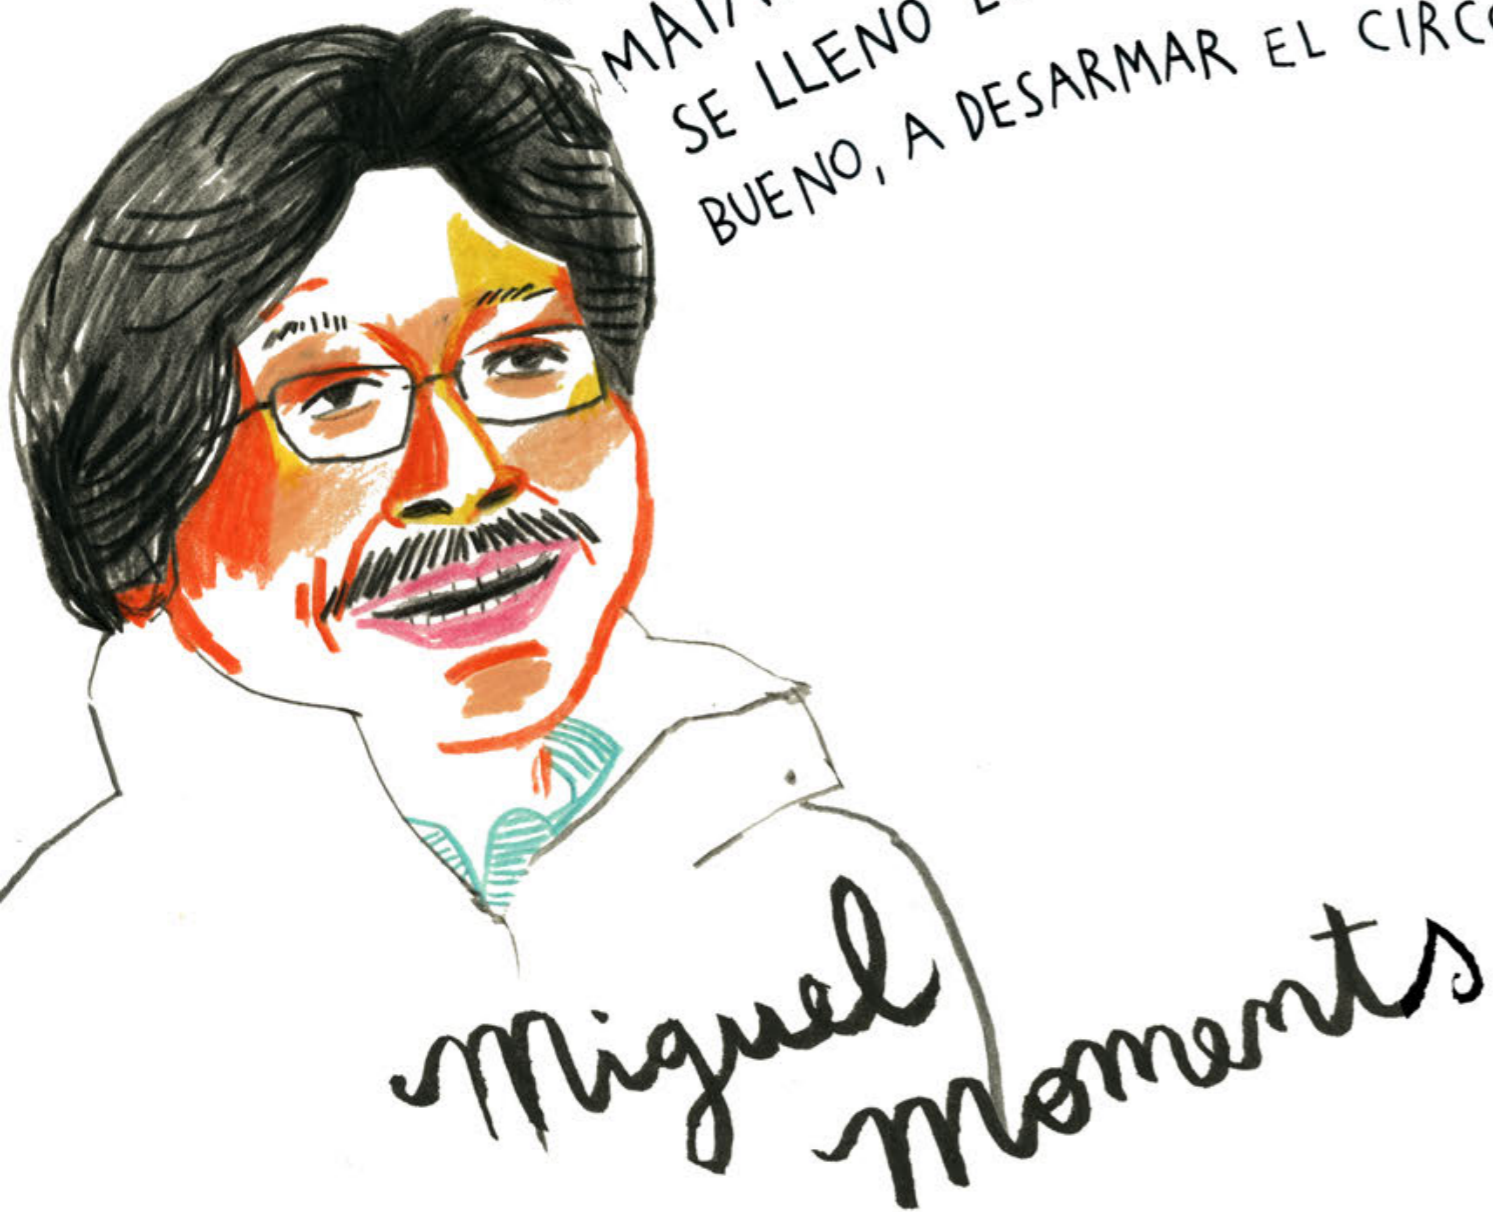 SE LLENO
BUENO, A DESARMAR EL CIRCO
Miguel
Moments